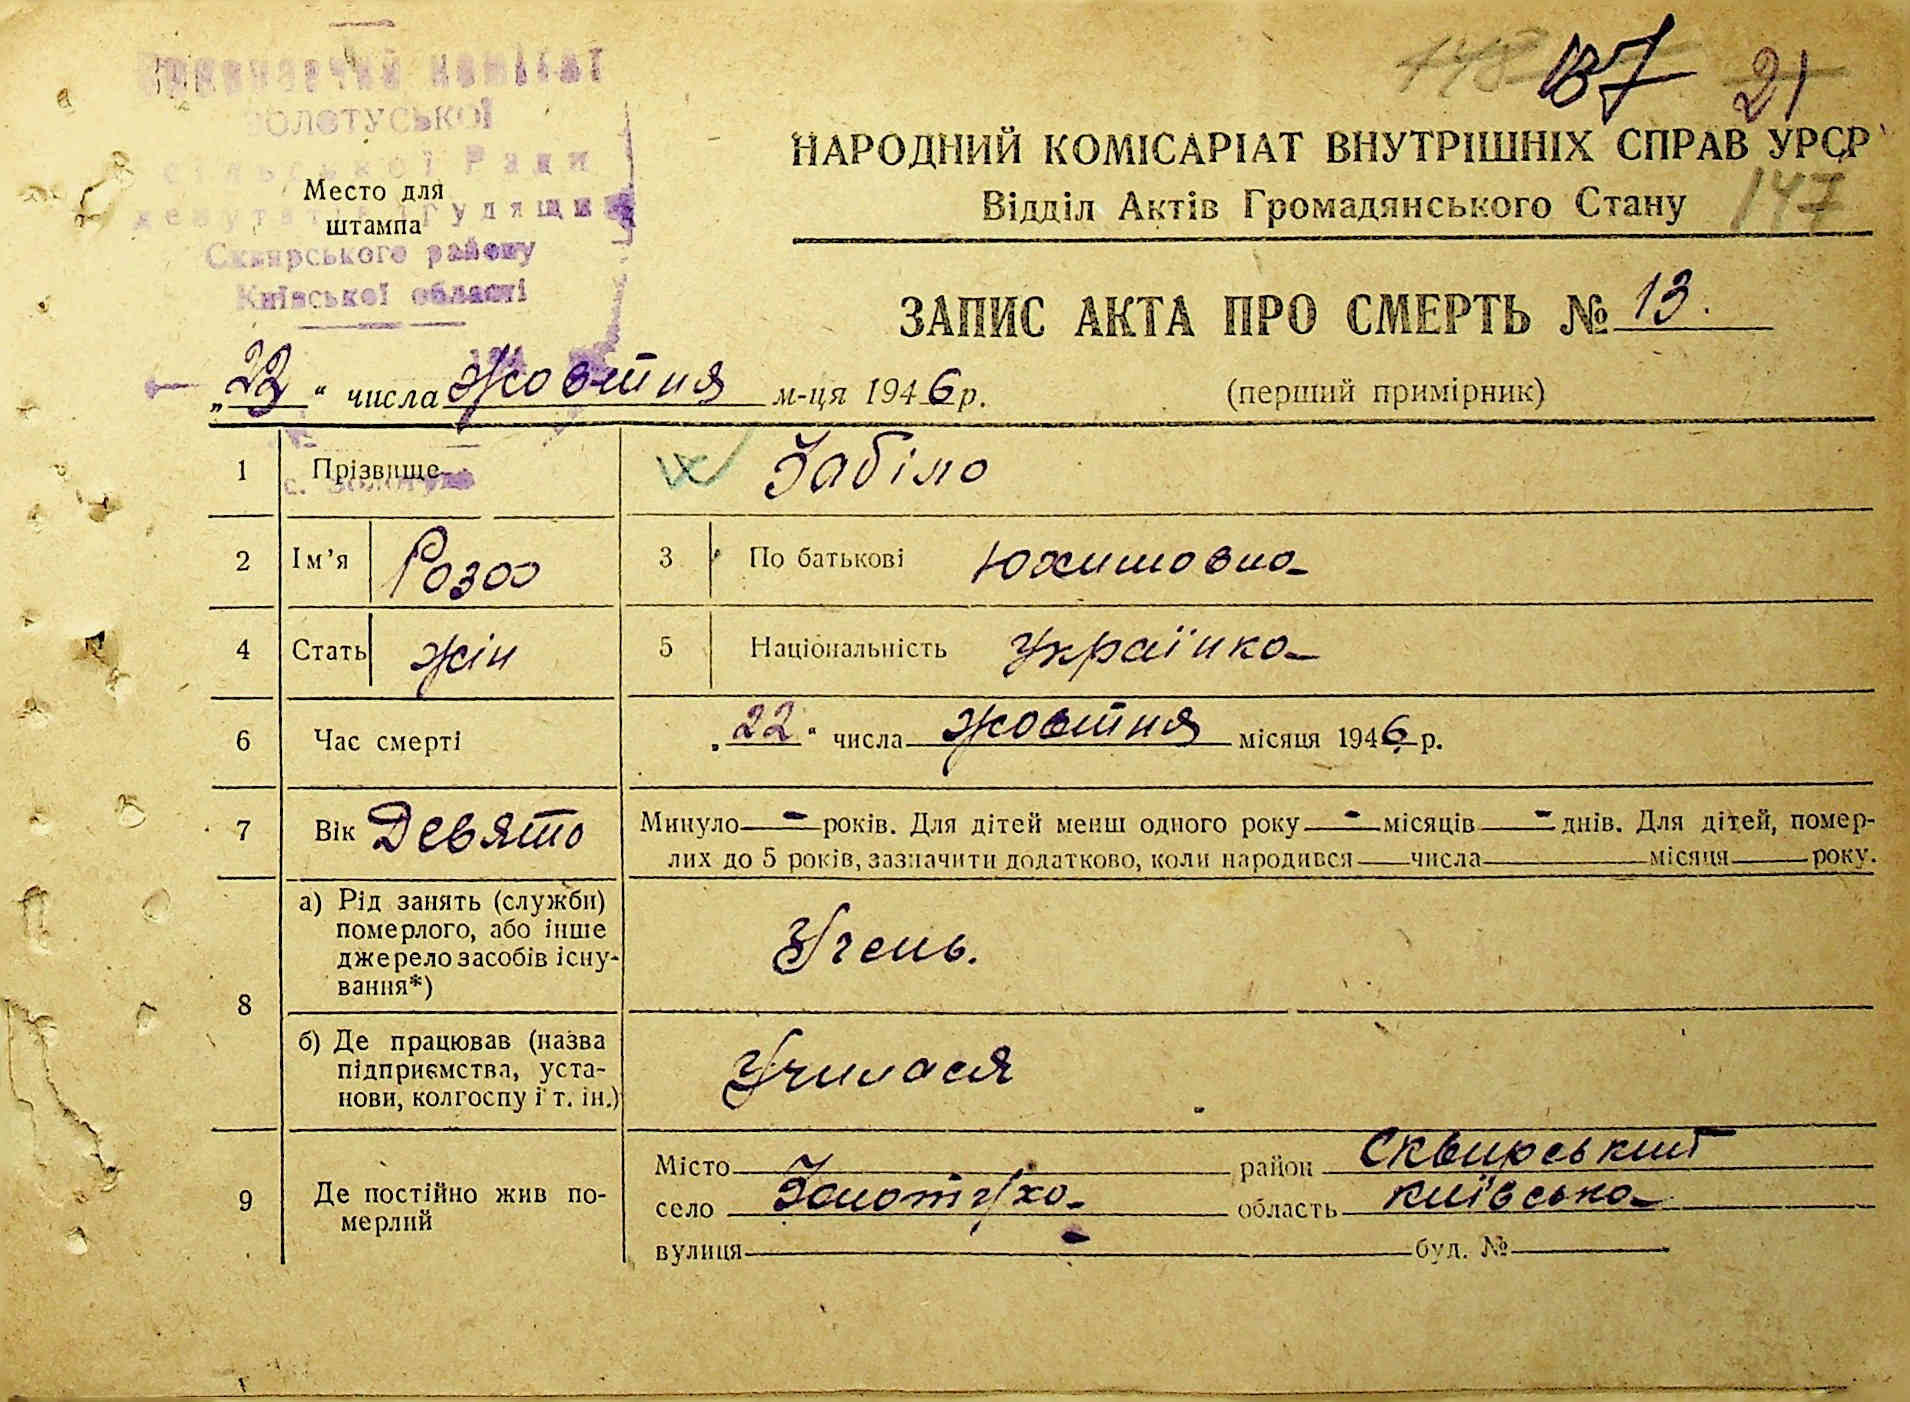 Виконавчий комітет
ЗОЛОТУСЬКОЇ
сільської Ради
депутатів трудящих
Сквирського району
Київської області
Место для
штампа
148 137 21
НАРОДНИЙ КОМІСАРІАТ ВНУТРІШНІХ СПРАВ УРСР
Відділ Актів Громадянського Стану 147
ЗАПИС АКТА ПРО СМЕРТЬ № 13.
„23“ числа жовтня м-ця 1946 р.
(перший примірник)
1 Прізвище Забіло
2 Ім’я Роза 3 По батькові Юхимовна
4 Стать жін 5 Національність Українка
6 Час смерті „22“ числа жовтня місяця 1946 р.
7 Вік Девято Минуло - років. Для дітей менш одного року - місяців - днів. Для дітей, помер-
лих до 5 років, зазначити додатково, коли народився числа місяця року.
8 а) Рід занять (служби)
померлого, або інше
джерело засобів існу-
вання*)
Учень.
б) Де працював (назва
підприємства, уста-
нови, колгоспу і т. ін.)
Училася
9 Де постійно жив по-
мерлий
Місто район Сквирський
село Золотуха область київська
вулиця - буд. №